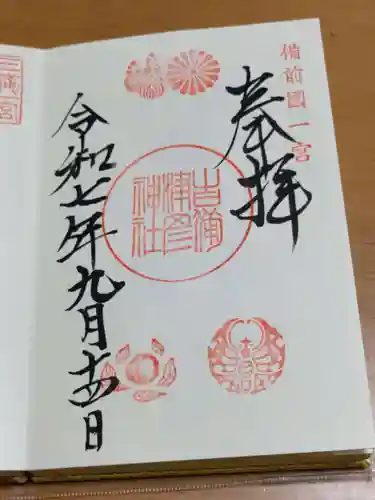 備前國一宮
奉拝
吉備
津彦
神社
令和七年九月十四日